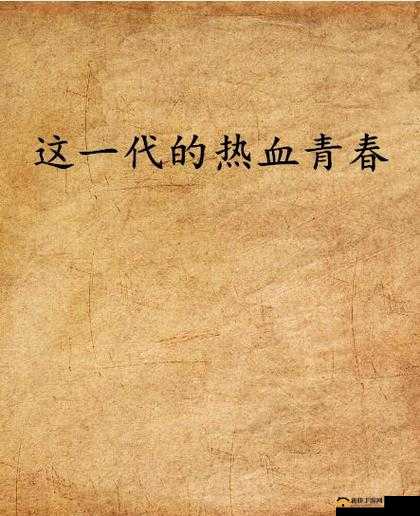 这一代的热血青春